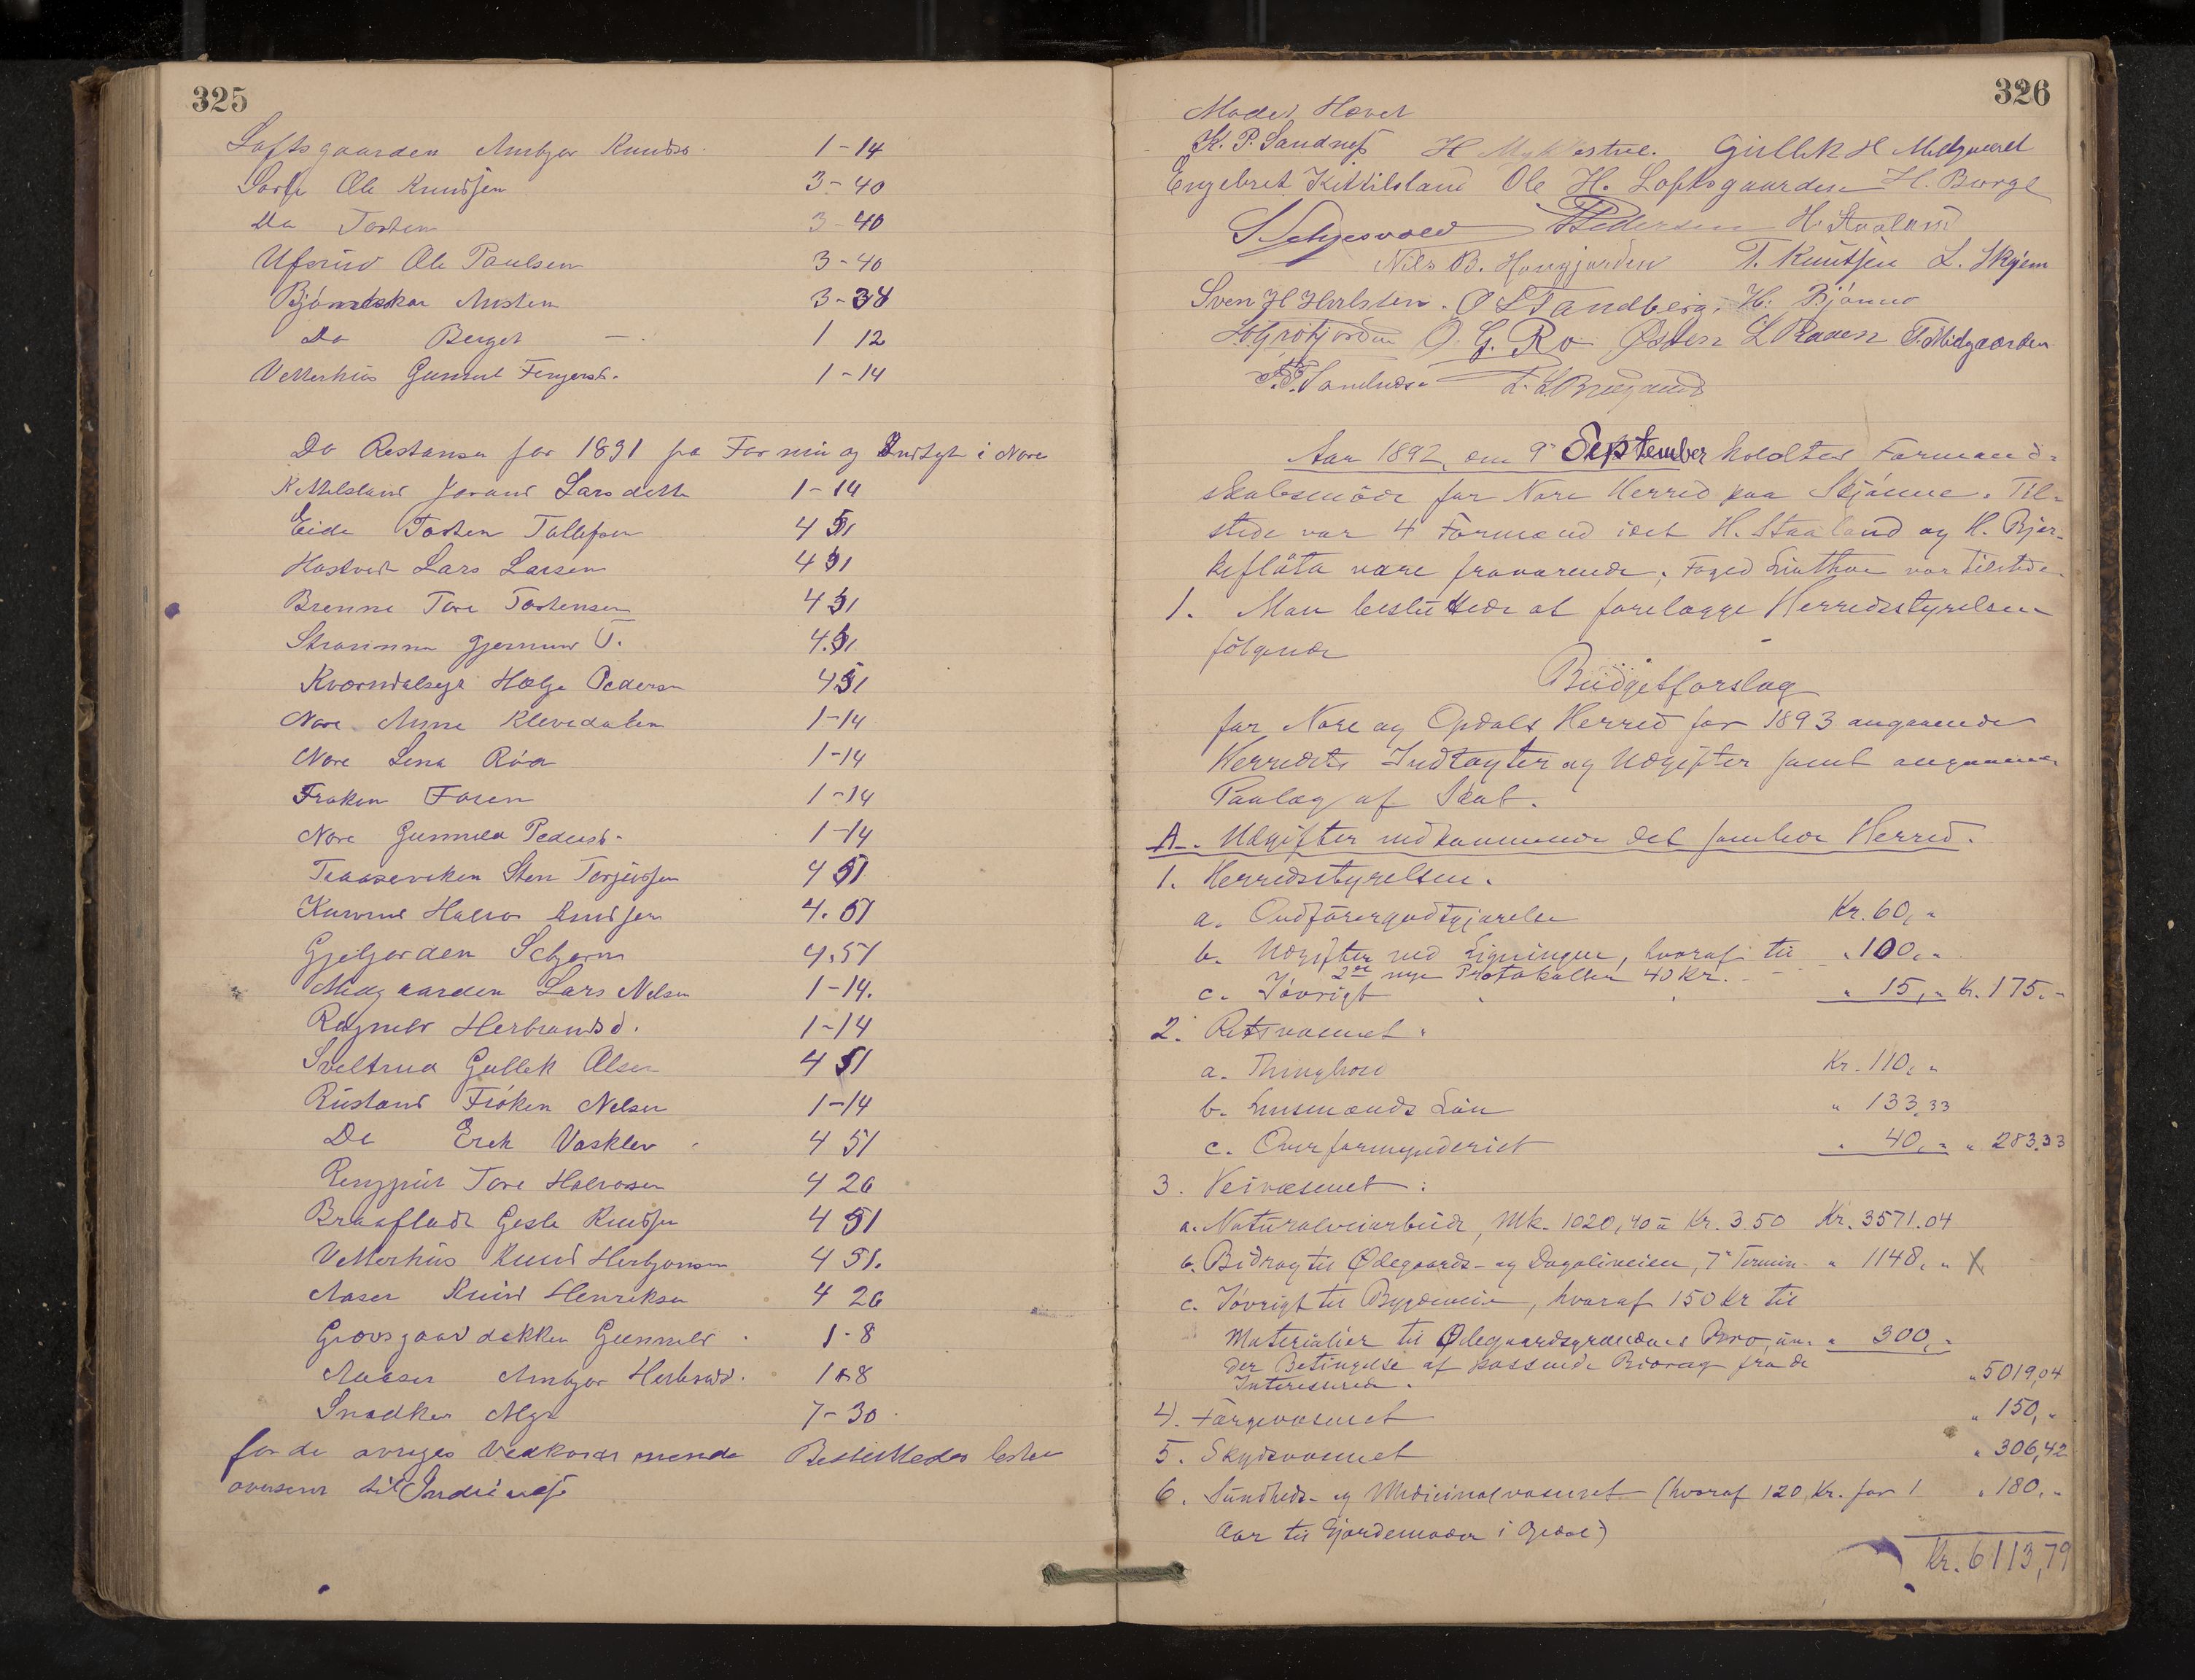 325
Loftsgaarden Ambjør Knudsd. 1-14
Sorfe Ole Knudsen 3-40
Do Tosten 3-40
Ufsrud Ole Paulsen 3-40
Bjørnebskar Austen 3-38
Do Berget 1 12
Vetterhus Gunnul 1-14
Do Restanser for 1891 fra Formue og Indtægt i Nore
Kettilsland Jørand Larsdatter 1-14
Eide Tosten Tollefsen 4 51
Hastved Lars Larsen 4 51
Brenne Tore Tostensen 4 51
Strømmen Gjermund T. 4.51
Helge Pedersen 4 51
Nore Anne Klevedalen 1-14
Nore Lena Røa 1-14
Frøken Foren 1-14
Nore Gunnild Pedersd. 1-14
Sten Torjussen 4 51
Halvor Knudsen 4.51
Gjeljorden 4.51
Midgaarden Lars Nelsen 1-14.
Ragnild Herbrandsd. 1-14
Sveltrud Gullek Olsen 4 51
Rustand Frøken Nelsen 1-14
Do Erek Vasklev 4 51
Tore Halvorsen 4 26
Braafladt Gisle Knudsen 4 51
Vetterhus Knud Herbjønsen 4 51.
Aaser Knud Henriksen 4 26
Grovsgaardbakken Gunnild 1-8
Aaser Ambjør Herbrandsd. 1-8
Snedker Myr 7-30
for de øvriges Vedkommende Besluttedes
oversendt til Inddrivelse
326
Mødet Hævet
K. P. Sandnes H Myklestul. Gullik H Midgaard
Engebret Kittilsland Ole H. Loftsgaarden H. Børge
Pedersen H. Staaland
Nils B. T. Knutsen L. Skjem
Sven H Halsten. O Strandberg. H. Bjønno
H. Grøtjorden O. G. Ro Østen L Raaen T. Midgaarden
T. T. Sandnes
Aar 1892, den 9de September holdtes Formand-
skabsmøde for Nore Herred paa Skjønne. Til-
stede var 4 Formænd idet H. Staaland og H. Bjer-
keflåta vare fraværende. Foged Linthoe var tilstede.
1. Man besluttede at forelægge Herredsstyrelsen
følgende
Budgetforslag
for Nore og Opdals Herred for 1893 angaaende
Herredets Indtægter og Udgifter samt angaaende
Paalæg af Skat.
A. Udgifter vedkommende det samlede Herred.
1. Herredsstyrelsen.
a. Ordførergodtgjørelse Kr. 60,"
b. Udgifter ved Ligningen, hvoraf til " 100,"
2de nye Protokoller 40 Kr.
c. Iøvrigt " 15," Kr. 175.-
2. Retsvæsenet.
a. Thinghold Kr. 110,"
b. Lensmands Løn " 133,33
c. Overformynderiet " 40," " 283.33
3. Veivæsenet:
a. Naturalveiarbeide, Mk. 1020,40 à Kr. 3.50 Kr. 3571.04
b. Bidrag til Ødegaards- og Dagaliveien, 7de Termin " 1148," X
c. Iøvrigt til Bygdeveie, hvoraf 150 Kr til
Materialier til Ødegaardsgrændens Bro, un- " 300,"
der Betingelse af passende Bidrag fra de
Interesserede. " 5019,04
4. Færgevæsenet " 150,"
5. Skydsvæsenet " 306,42
6. Sundheds- og Medicinalvæsenet (hvoraf 120 Kr. for 1 " 180,"
Aar til Gjordemoder i Opdal)
Kr. 6113,79